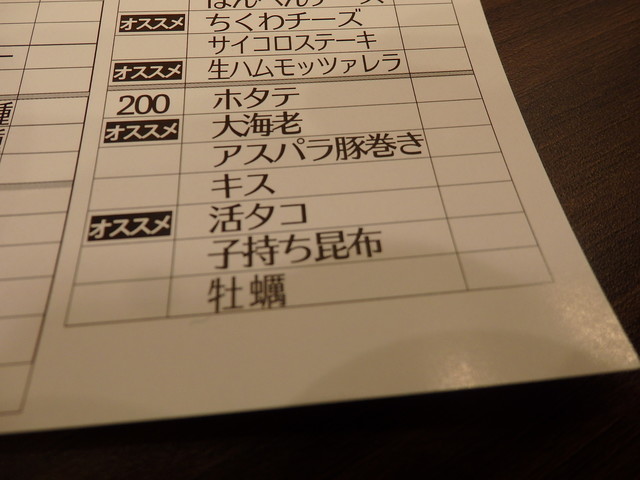 はんぺんチーズ
オススメ ちくわチーズ
サイコロステーキ
オススメ 生ハムモッツァレラ
200 ホタテ
オススメ 大海老
アスパラ豚巻き
キス
オススメ 活タコ
子持ち昆布
牡蠣